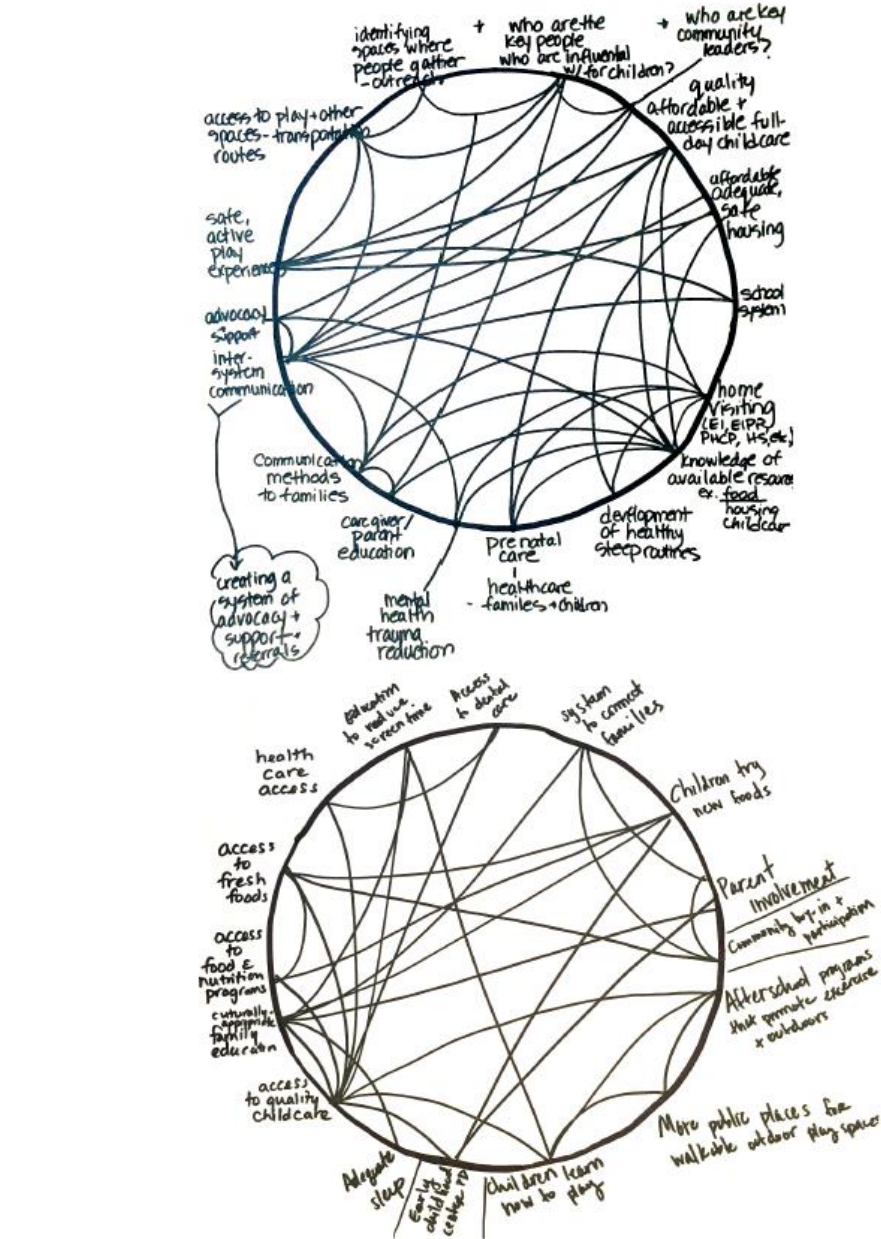 identifying
spaces where
people gather
-outreach
+ who are the
key people
who are influental
w/for children?
+ who are key
community
leaders?
quality
affordable +
accessible full-
day childcare
affordable
adequate,
safe
housing
school
system
home
visiting
(EI, EIPR,
PHCP, HS, etc)
knowledge of
available resour
ex. food
housing
childcar
development
of healthy
sleep routines
prenatal
care
healthcare
- familes + children
mental
health
trauma
reduction
caregiver/
parent
education
Communication
methods
to families
inter-
system
communication
creating a
system of
advocacy +
support +
referrals
advocacy
support
safe,
active
play
experiences
access to play + other
spaces - transportation
routes
Education
to reduce
screen time
Access
to dental
care
system
to connect
families
Children try
new foods
Parent
involvement
Community buy-in +
participation
Afterschool programs
that promote exercise
+ outdoors
More public places for
walkable outdoor play spaces
children learn
how to play
Early
childhood
center PD
Adequate
sleep
access
to quality
childcare
culturally-
appropriate
family
education
access
to
food &
nutrition
programs
access
to
fresh
foods
health
care
access